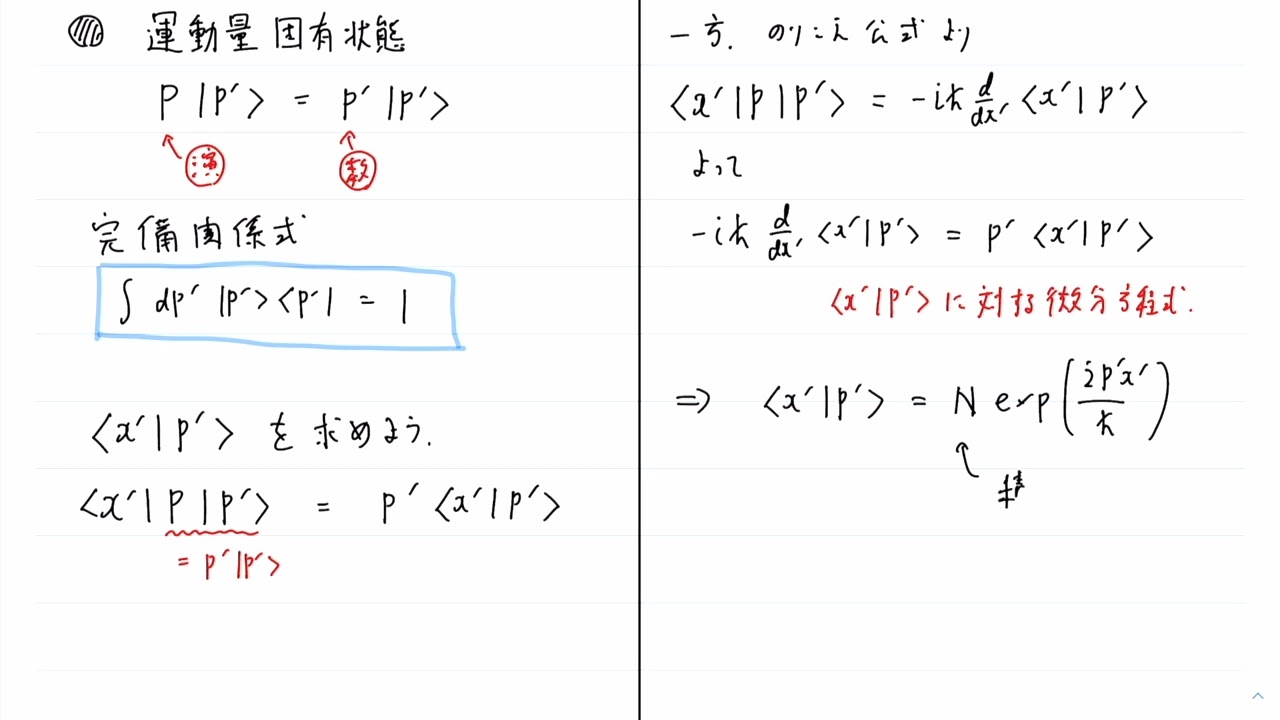 運動量固有状態
P |p′⟩ = p′ |p′⟩
演 数
完備関係式
∫ dp′ |p′⟩⟨p′| = 1
⟨x′|p′⟩ を求めよう.
⟨x′|P|p′⟩ = p′⟨x′|p′⟩
= p′|p′⟩
一方. のりこえ公式より
⟨x′|P|p′⟩ = -iℏ d/dx′ ⟨x′|p′⟩
よって
-iℏ d/dx′ ⟨x′|p′⟩ = p′ ⟨x′|p′⟩
⟨x′|p′⟩ に対する微分方程式.
⇒ ⟨x′|p′⟩ = N exp(ip′x′/ℏ)